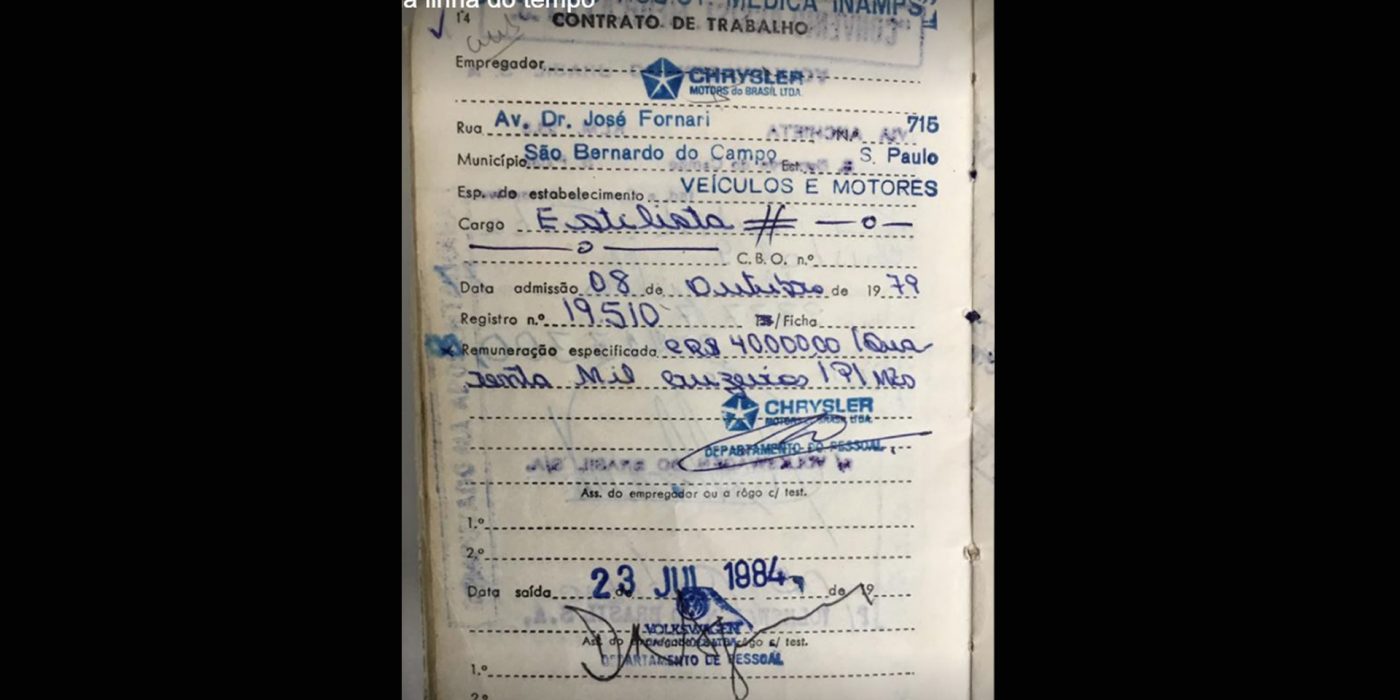 a linha do tempo
MÉDICA INAMPS
14
CONTRATO DE TRABALHO
Empregador
CHRYSLER
MOTORS do BRASIL LTDA.
Rua Av. Dr. José Fornari 715
Município São Bernardo do Campo Est. S. Paulo
Esp. do estabelecimento VEÍCULOS E MOTORES
Cargo Estilista # —o—
—o—
C.B.O. n.º
Data admissão 08 de Outubro de 1979
Registro n.º 19.510 /Ficha
Remuneração especificada CR$ 40.000,00 (Qua
renta Mil cruzeiros) P/ Mês
CHRYSLER
MOTORS do BRASIL LTDA.
DEPARTAMENTO DO PESSOAL
Ass. do empregador ou a rôgo c/ test.
1.º
2.º
Data saída 23 JUL 1984 de 19
VOLKSWAGEN
Ass. do empregador ou a rôgo c/ test.
DEPARTAMENTO DE PESSOAL
1.º
2.º